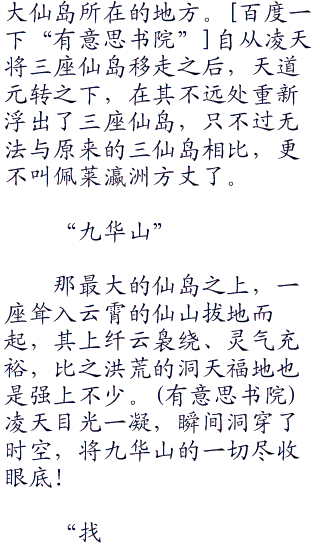 大仙岛所在的地方。[百度一
下“有意思书院”]自从凌天
将三座仙岛移走之后，天道
元转之下，在其不远处重新
浮出了三座仙岛，只不过无
法与原来的三仙岛相比，更
不叫佩莱瀛洲方丈了。
“九华山”
那最大的仙岛之上，一
座耸入云霄的仙山拔地而
起，其上纤云袅绕、灵气充
裕，比之洪荒的洞天福地也
是强上不少。(有意思书院)
凌天目光一凝，瞬间洞穿了
时空，将九华山的一切尽收
眼底！
“找